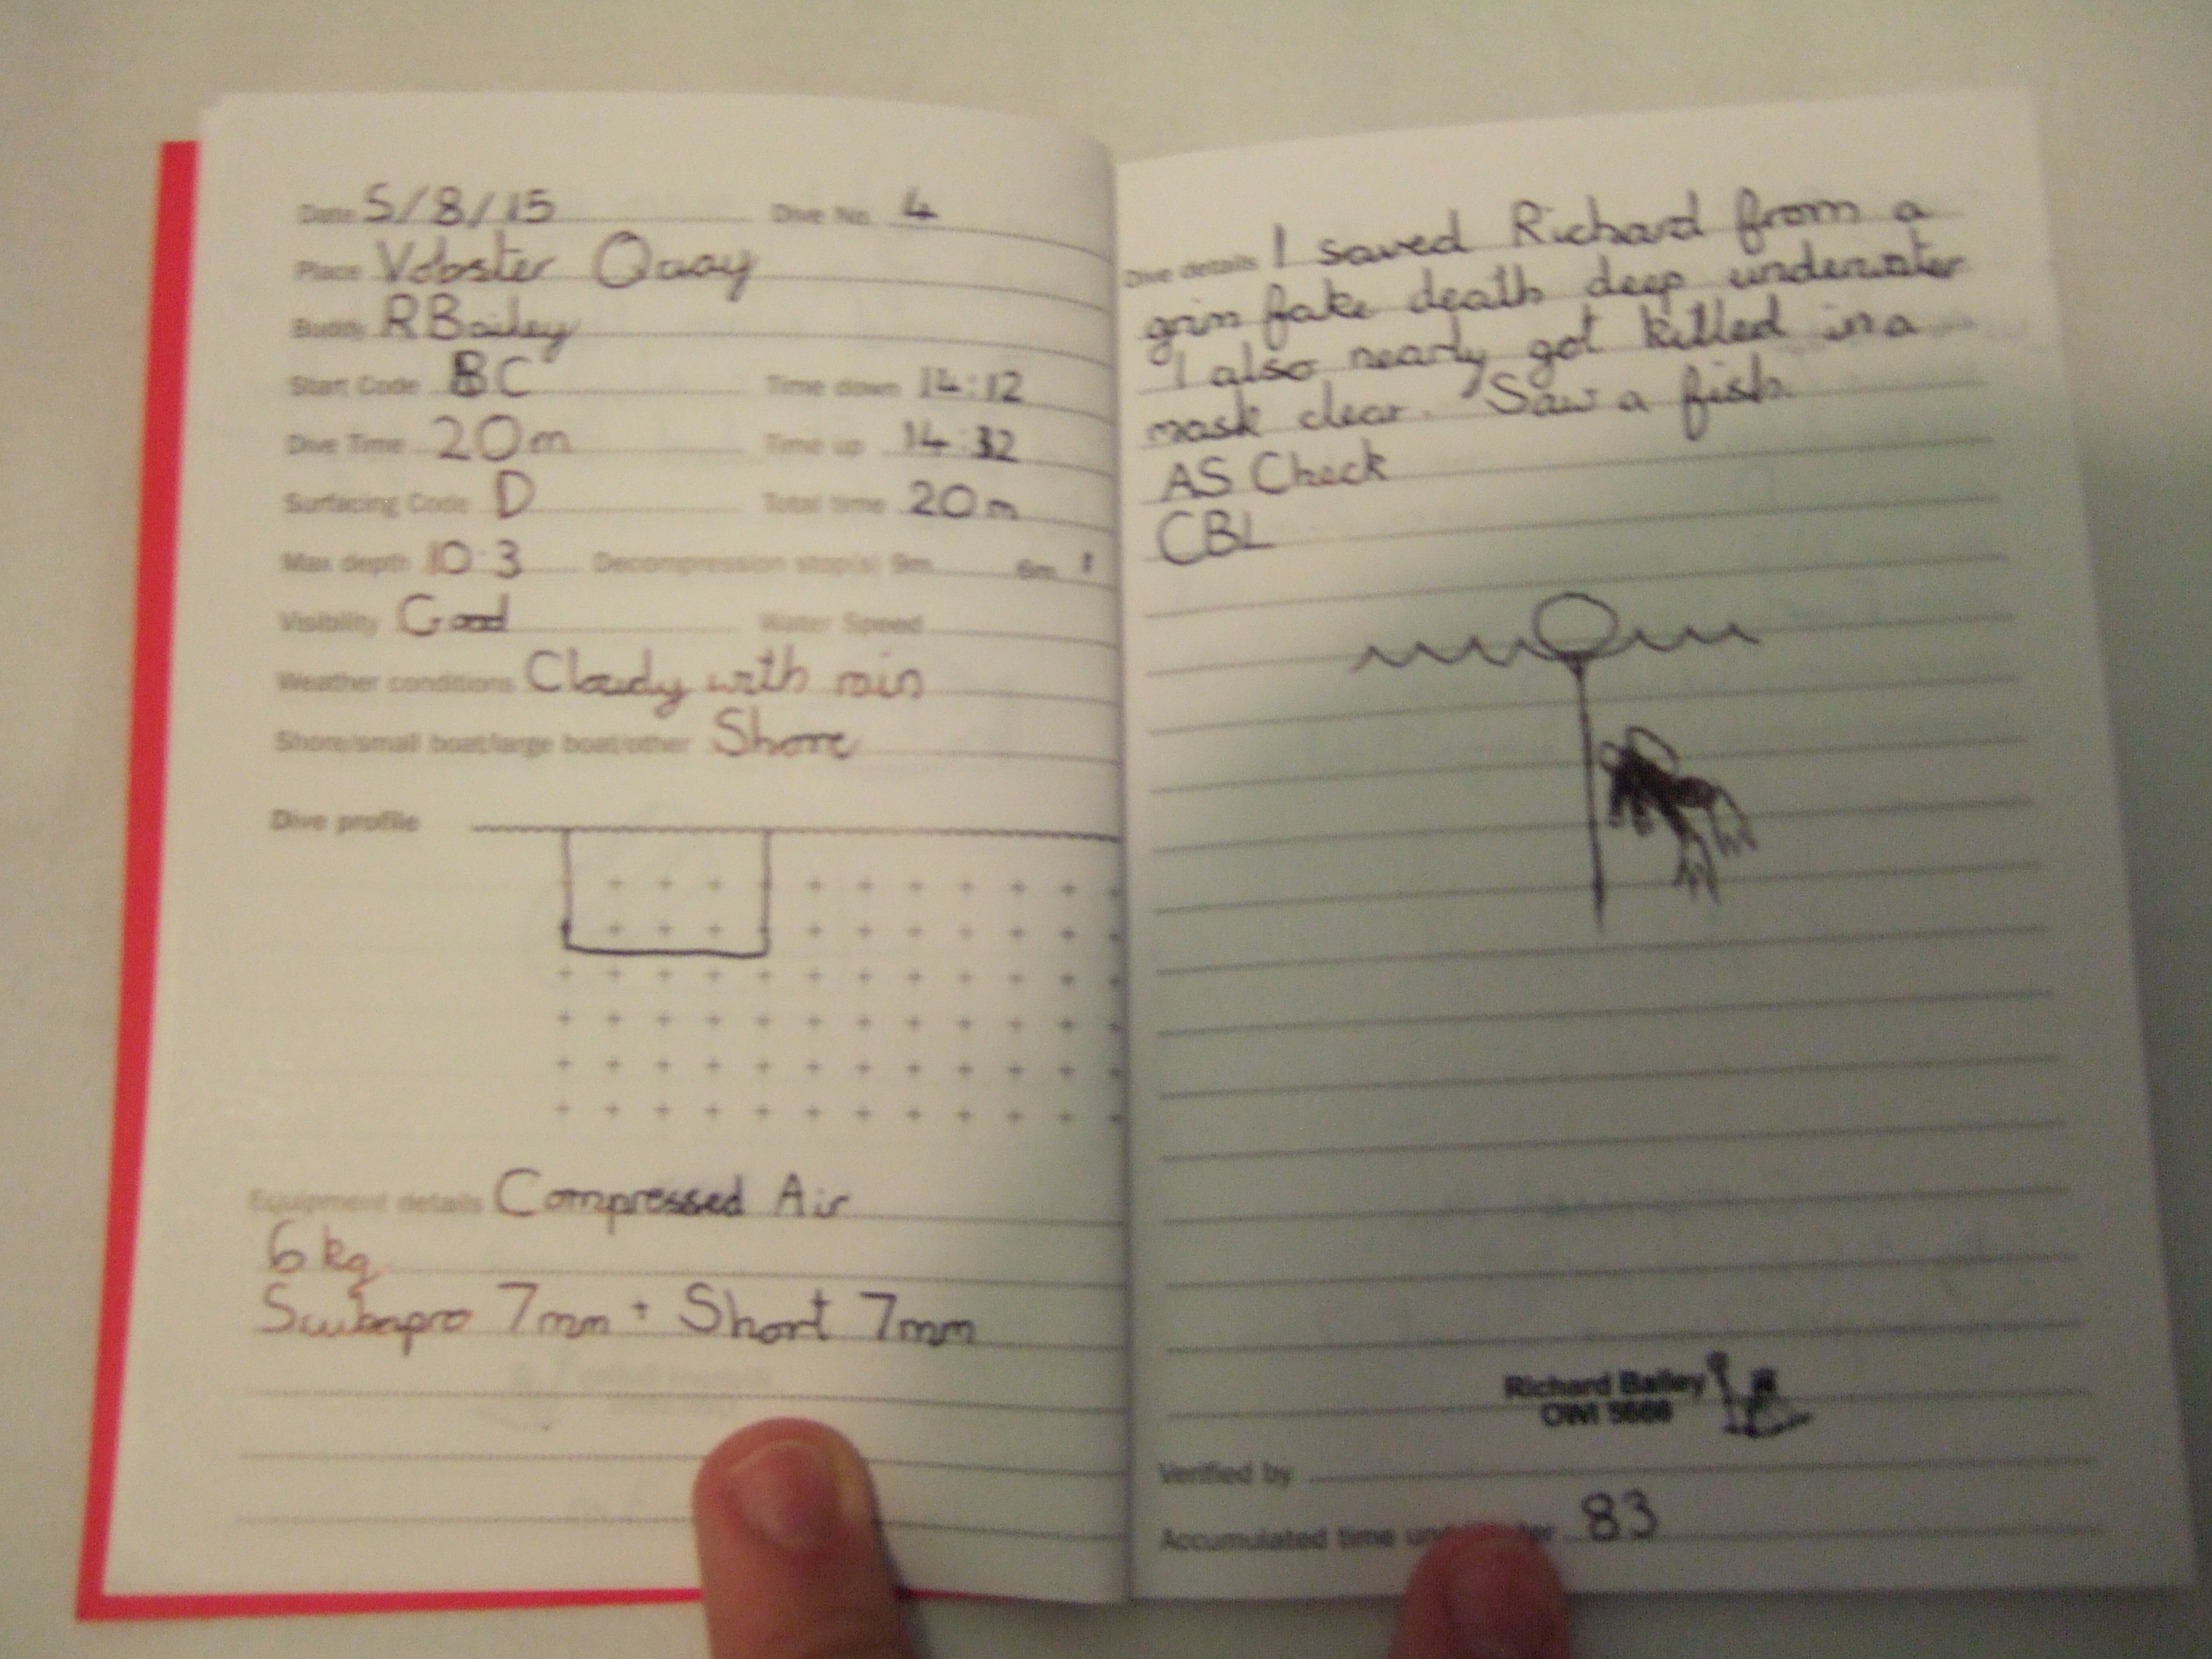 Date 5/8/15 Dive No. 4
Place Vobster Quay
Buddy R Bailey
Start Code BC Time down 14:12
Dive Time 20m Time up 14:32
Surfacing Code D Total time 20m
Max depth 10.3 Decompression stop(s) 9m 6m
Visibility Good Water Speed
Weather conditions Cloudy with rain
Shore/small boat/large boat/other Shore
Dive profile
Equipment details Compressed Air
6kg
Scubapro 7mm + Short 7mm
Dive details I saved Richard from a
grim fake death deep underwater
I also nearly got killed in a
mask clear. Saw a fish.
AS Check
CBL
Richard Bailey
OWI
Verified by
Accumulated time underwater 83